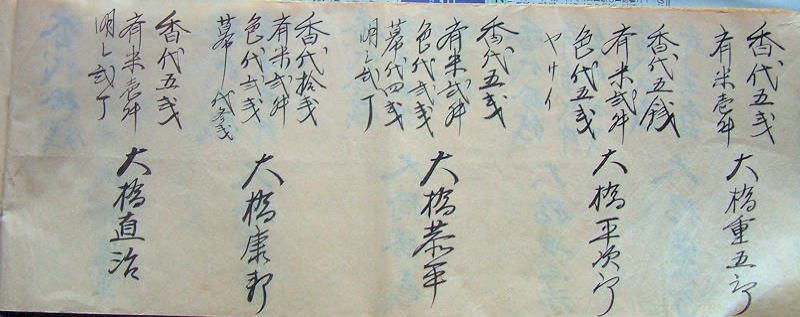 香代五戋
有米壱升
大橋重五郎
香代五銭
有米弐升
色代五戋
ヤサイ
大橋平次郎
香代五戋
有米弐升
色代弐戋
幕代四戋
弐丁
大橋恭平
香代拾戋
有米弐升
色代弐戋
幕代
大橋康郎
香代五戋
有米壱升
弐丁
大橋直治